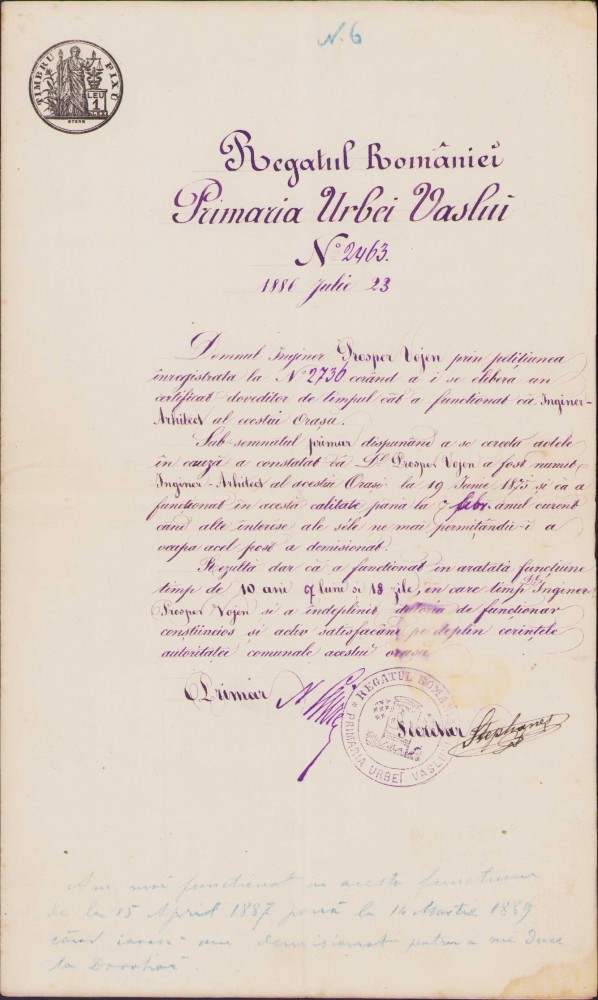 N. 6
TIMBRU FIXU
LEU
1
Regatul României
Primaria Urbei Vaslui
No 2463.
1886 Julie 23
Domnul Inginer Prosper Vojen prin petițiunea
înregistrata la No 2736 cerând a i se elibera un
certificat doveditor de timpul cât a functionat ca Inginer-
Arhitect al acestui Orașu.
Sub semnatul primar dispunênd a se cerceta actele
în cauză a constatat că Dl Prosper Vojen a fost numit
Inginer-Arhitect al acestui Orași la 19 Iunie 1875 și că a
functionat în acestă calitate pana la 7 febr. anul curent
când alte interese ale sële ne mai permițându-i a
ocupa acel post a demisionat.
Rezultă dar că a functionat în aratata funcțiune
timp de 10 ani 7 luni si 18 zile, în care timp Dl Inginer
Prosper Vojen si a îndeplinit datoria de funcționar
conștiincios și activ satisfacând pe deplin cerințele
autoritatei comunale acestui orași
Primar
REGATUL ROMÂNIEI
PRIMARIA URBEI VASLUI
Stephanes
Am mai functionat in acesta functiune
de la 15 April 1887 pană la 14 Martie 1889
când am demisionat pentru a me duce
la Dorohoi.